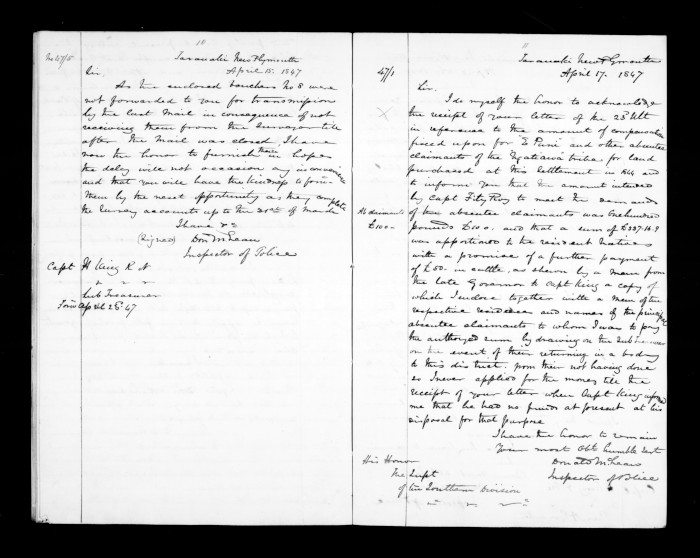 10
No 47/5
Taranaki New Plymouth
April 15. 1847
Sir.
As the enclosed vouchers No 8 were
not forwarded to you for transmission
by the last Mail in consequence of not
receiving them from the Surveyor till
after the Mail was closed I have
now the honor to furnish them in hopes
the delay will not occasion any inconvenience
and that you will have the kindness to forw
them by the next opportunity as they complete
the Survey accounts up to the 31st of March
I have &c
(Signed) Don McLean
Inspector of Police
Capt H King R N
Sub Treasurer
Forw April 28. 47
11
Taranaki New Plymouth
47/1
April 17. 1847
Sir.
I do myself the honor to acknowledge
the receipt of your letter of the 23 Ult
in reference to the amount of compensation
fixed upon for E Puni and other absentee
claimants of the Ngatiawa tribe for land
purchased at this settlement in 1844 and
to inform you that the amount intended
by Capt FitzRoy to meet the demands
As claimants
£100-
of the absentee claimants was One hundred
pounds £100. and that a sum of £237.16.9
was apportioned to the resident Natives
with a promise of a further payment
of £50. in cattle, as shewn by a memo from
the late Governor to Capt King a copy of
which I enclose together with a mem of the
respective residences and names of the principal
absentee claimants to whom I was to pay
the authorized sum by drawing on the Sub Treasurer
on the event of their returning in a body
to this district. from their not having done
so I never applied for the money till the
receipt of your letter when Capt King informed
me that he had no funds at present at his
disposal for that purpose
I have the honor to remain
Your most Obt humble Svt
Donald McLean
Inspector of Police
His Honor
The Supt
of the Southern Division